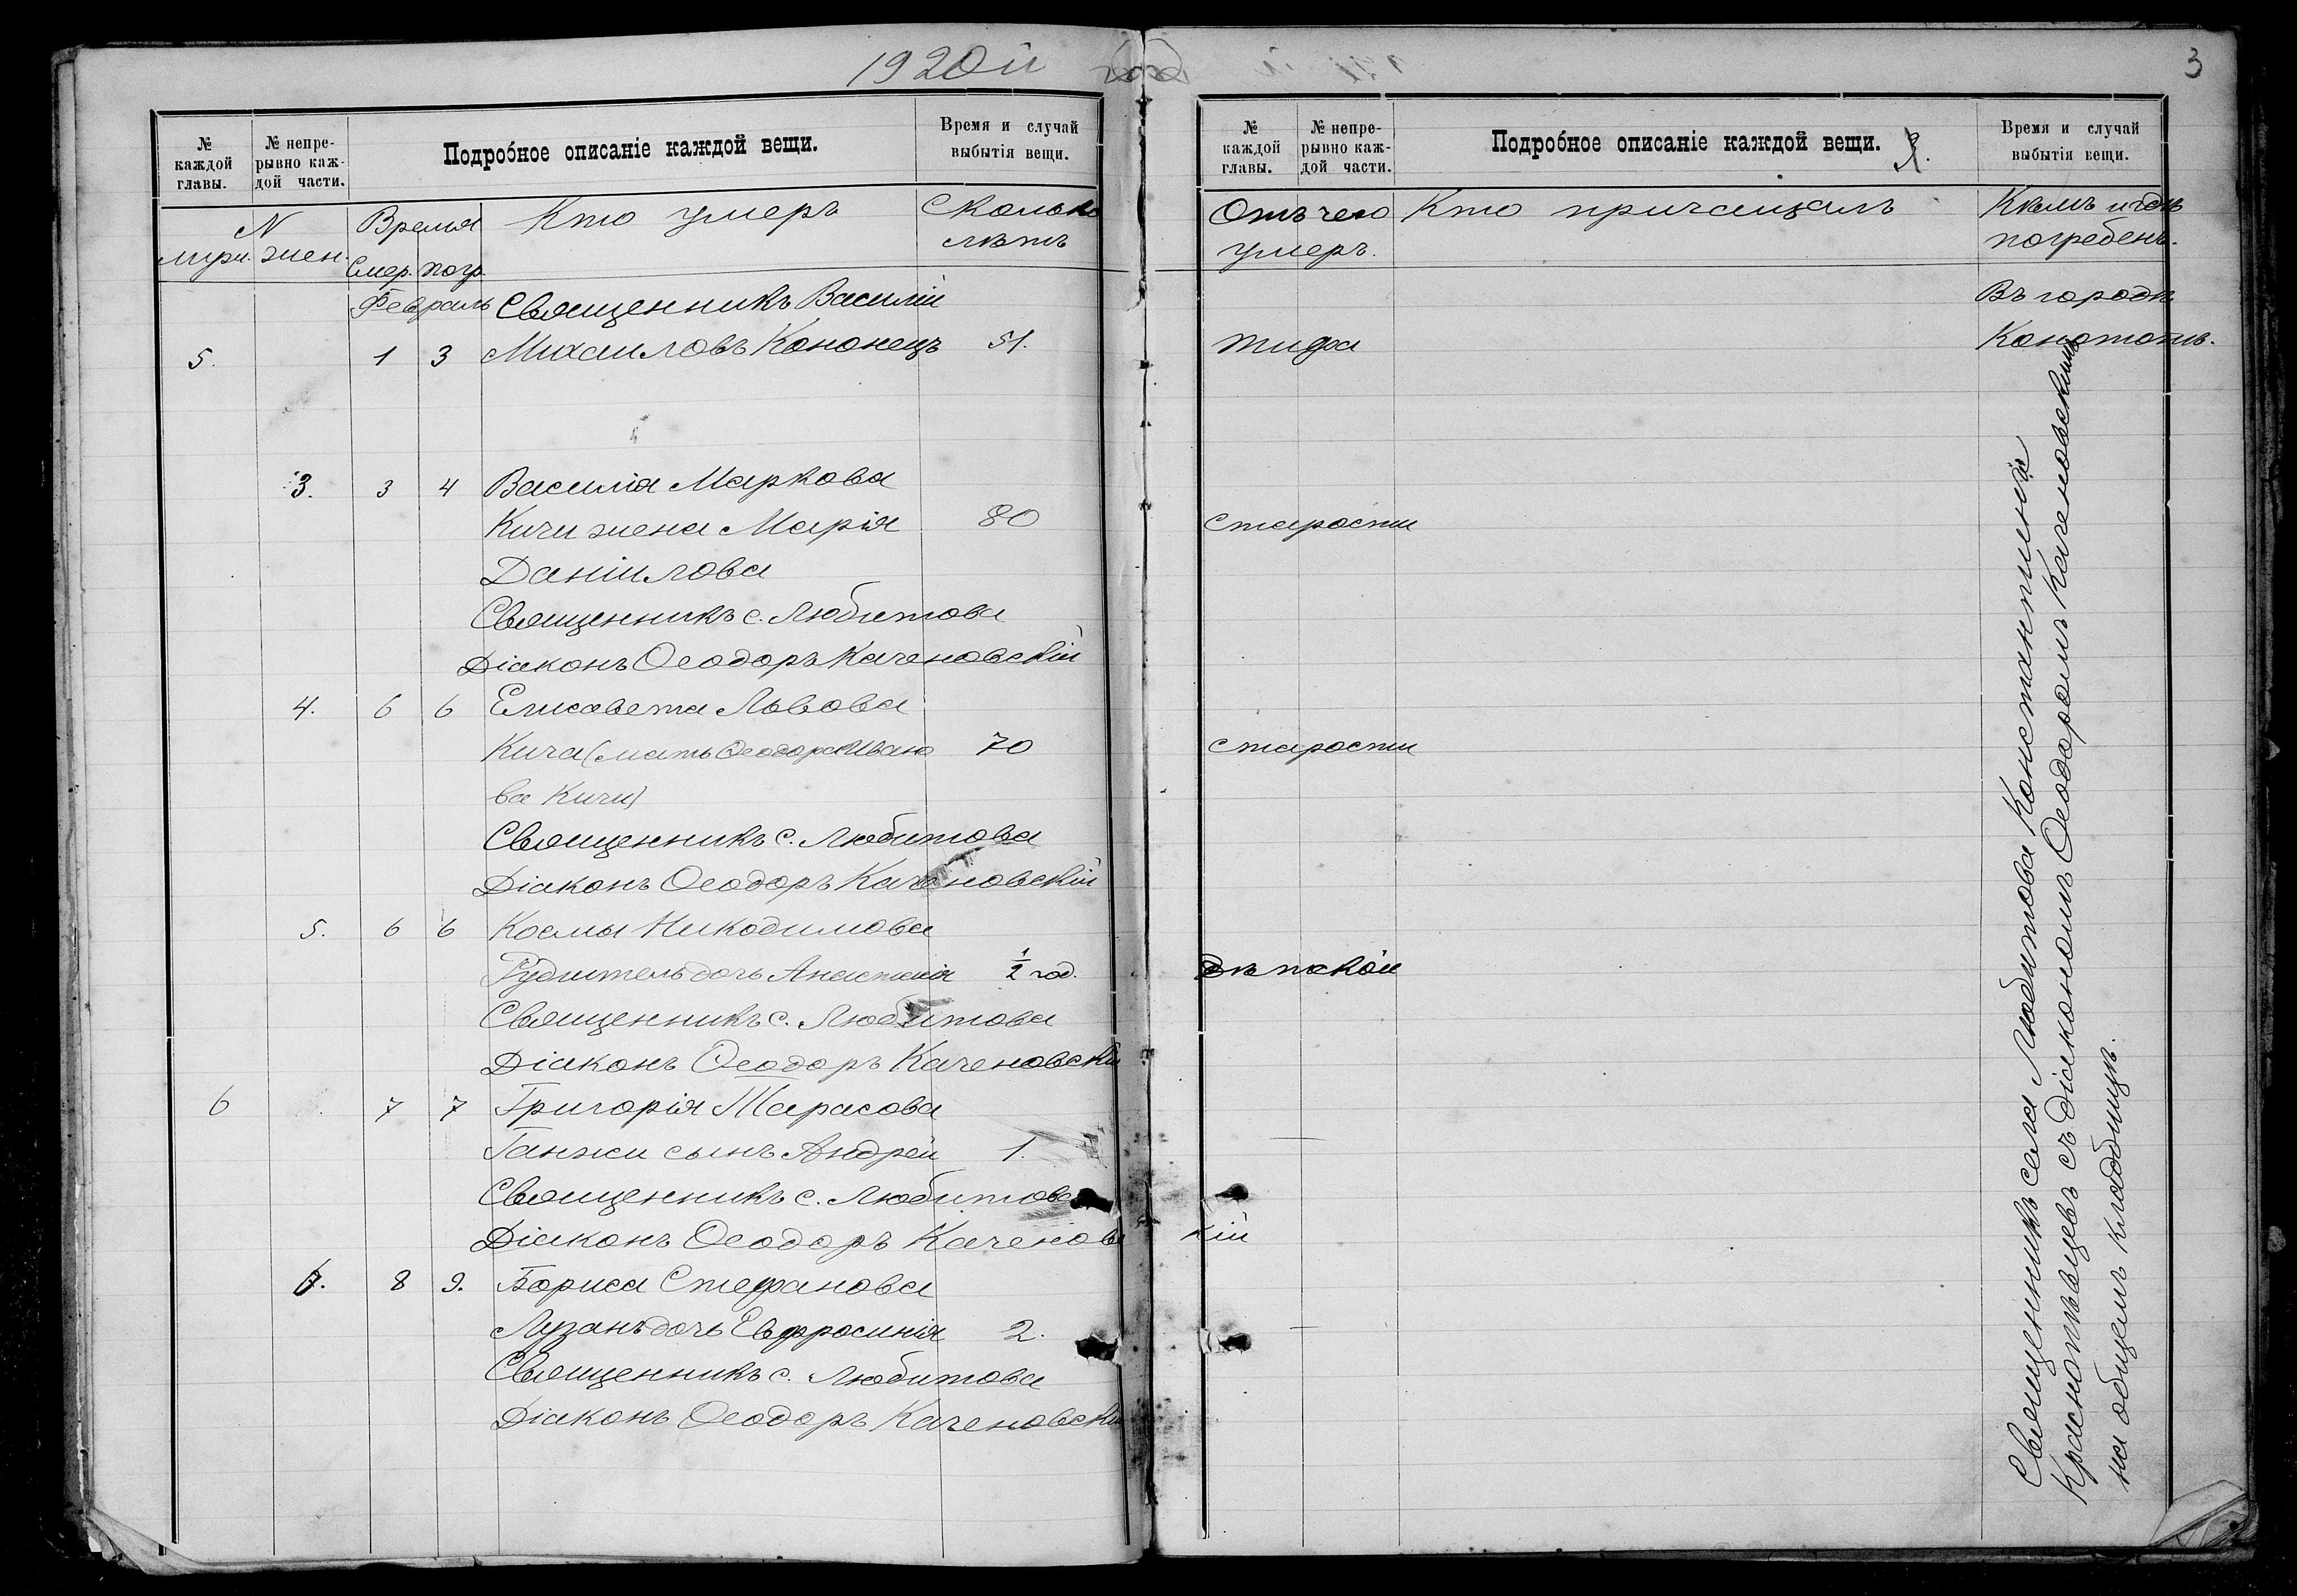 1920й год
№ каждой главы.
№ непрерывно каждой части.
Подробное описаніе каждой вещи.
Время и случай выбытія вещи.
N
муж. жен.
Время
Смер. погр.
Кто умеръ
Сколько
лѣтъ
Февраль Священникъ Василій
5. 1 3 Михаиловъ Кононецъ 51.
3. 3 4 Василія Маркова
Кичи жена Марія 80
Даніилова
Священникъ с. Любитова
Діаконъ Ѳеодоръ Каченовскій
4. 6 6 Елисавета Львова
Кича (мать Ѳеодора Ивано 70
ва Кичи)
Священникъ с. Любитова
Діаконъ Ѳеодоръ Каченовскій
5. 6 6 Космы Никодимова
дочь Анастасія 1/2 год.
Священникъ с. Любитова
Діаконъ Ѳеодоръ Каченовскій
6 7 7 Григорія Тарасова
Ганжи сынъ Андрей 1.
Священникъ с. Любитова
Діаконъ Ѳеодоръ Каченовскій
6. 8 9. Бориса Стефанова
Лузанъ дочь Евфросинія 2.
Священникъ с. Любитова
Діаконъ Ѳеодоръ Каченовскій
3
№ каждой главы.
№ непрерывно каждой части.
Подробное описаніе каждой вещи.
Время и случай выбытія вещи.
Отъ чего
умеръ.
Кто причащалъ
Кѣмъ и гдѣ
погребенъ.
Въ городѣ
тифа Конотопѣ.
старости
старости
дѣтской
—
—
Священникъ села Любитова Константиніе
Краснопѣвцевъ съ діакономъ Ѳеодоромъ Каченовскимъ
на общемъ кладбищѣ.